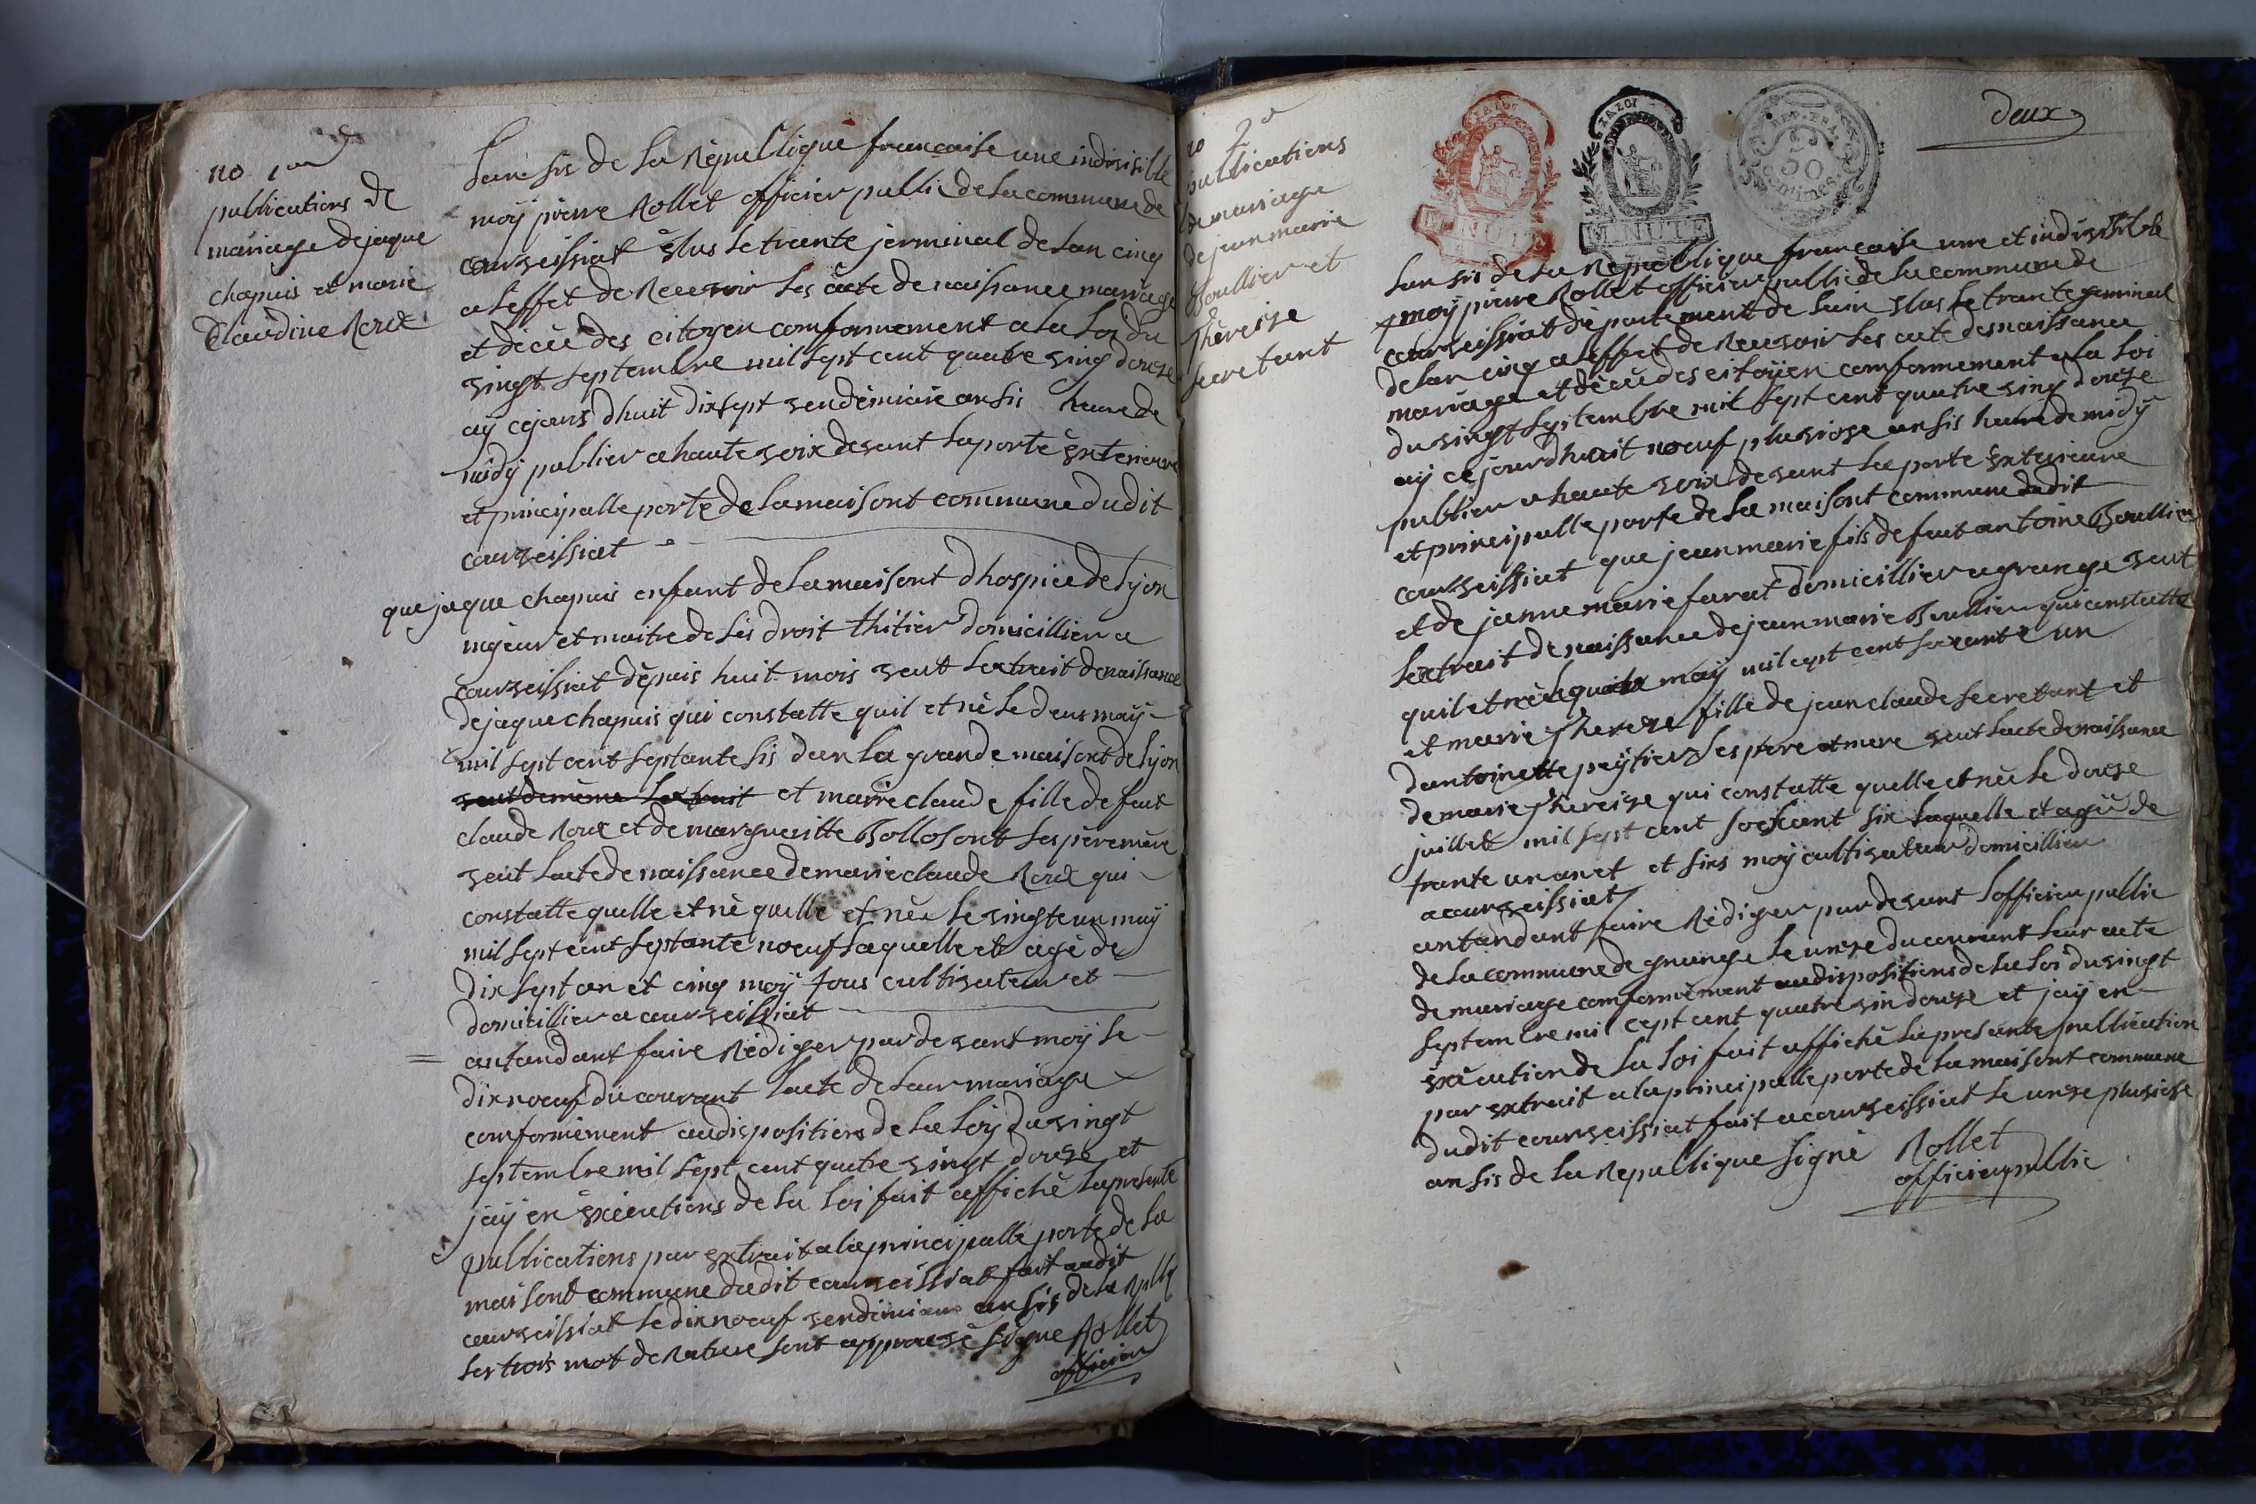 no 1er
publications de
mariage de jaque
chapuis et marie
Claudine Roux
Lan sis de la Republique francaise une indivisible
moy pierre Rollet officier public de la commune de
courseissiat Élus le trante jerminal de lan cinq
a leffet de Recevoir les acte de naissance mariage
et décèe des citoyen comformement a la Loi du
vingt septembre mil sept cent quatre ving douze
ay cejours dhuit dix sept vendémiaire an sis heure de
midy publier a haute voix devant la porte Exterieure
et principalle porte de la maisont commune dudit
courseissiat
que jaque chapuis enfant de la maisont dhospice de Lyon
majeur et maitre de ses droit thitier domicillier a
courseissiat dépuis huit mois veut Lextrait de naissance
de jaque chapuis qui constatte quil et né le deux may
mil sept cent septante sis dan la grande maisont de Lyon
veut de même Lextrait et marie claude fille de feut
claude Roux et de margueritte Bollosont ses père mère
veut lacte de naissance de marie claude Roux qui
constatte quelle et né quelle et née le vingt un may
mil sept cent septante noeuf laquelle et agé de
dix sept an et cinq moy tous cultivateur et
domicillier a courseissiat
antandant faire Rédiger par devant moy le
dix noeuf du courant lacte de leur mariage
comformément audispositions de la Loy du vingt
septembre mil sept cent quatre vingt douze et
jay en Exécutions de la Loi fait affiché la presente
publications par Extrait a la principalle porte de la
maisont commune dudit courseissiat fait audit
courseissiat le dix noeuf vendimiaire an sis de la Repub
les trois mot de Rature sont approuvé signe Rollet
officier
deux
no 2e
publications
de mariage
de jean marie
Boullier et
Théreize
secretant
MINUTE
MINUTE
REP. FRA.
50
centimes
Lan sis de la Republique francaise une et indivisible
moy pierre Rollet officier public de la commune de
courseissiat département de lain Élus le trante germinal
de lan cinq a leffet de Recevoir les acte de naissance
mariage et décèe des citoyen comformement a la Loi
du vingt septembre mil sept cent quatre ving douze
ay ce jourdhuit noeuf pluviose an sis heure de midy
publier a haute voix devant la porte Exterieure
et principalle porte de la maisont commune dudit
courseissiat que jean marie fils de feut antoine Boullier
et de janne marie farat domicillier a grange veut
Lextrait de naissance de jean marie Boullier qui constatte
quil et né le quatre may mil cept cent soixante un
et marie Thereze fille de jean claude secretant et
dantoinette peytier ses pere et mere veut lacte de naissance
de marie Théreize qui constatte quelle et née le douze
juillet mil sept cent soixant six laquelle et agée de
trante un an et sixs moy cultivateur domicillier
a courseissiat
antandant faire Rédiger par devant Lofficier public
de la commune de grange le unze du courant leur acte
de mariage comformément audispositions de la loi du vingt
septembre mil cept cent quatre vin douze et jay en
Exécution de la Loi fait affiché la presente publication
par Extrait a la principalle porte de la maisont commune
dudit courseissiat fait a courseissiat le unze pluviose
an sis de la Republique signé Rollet
officier public